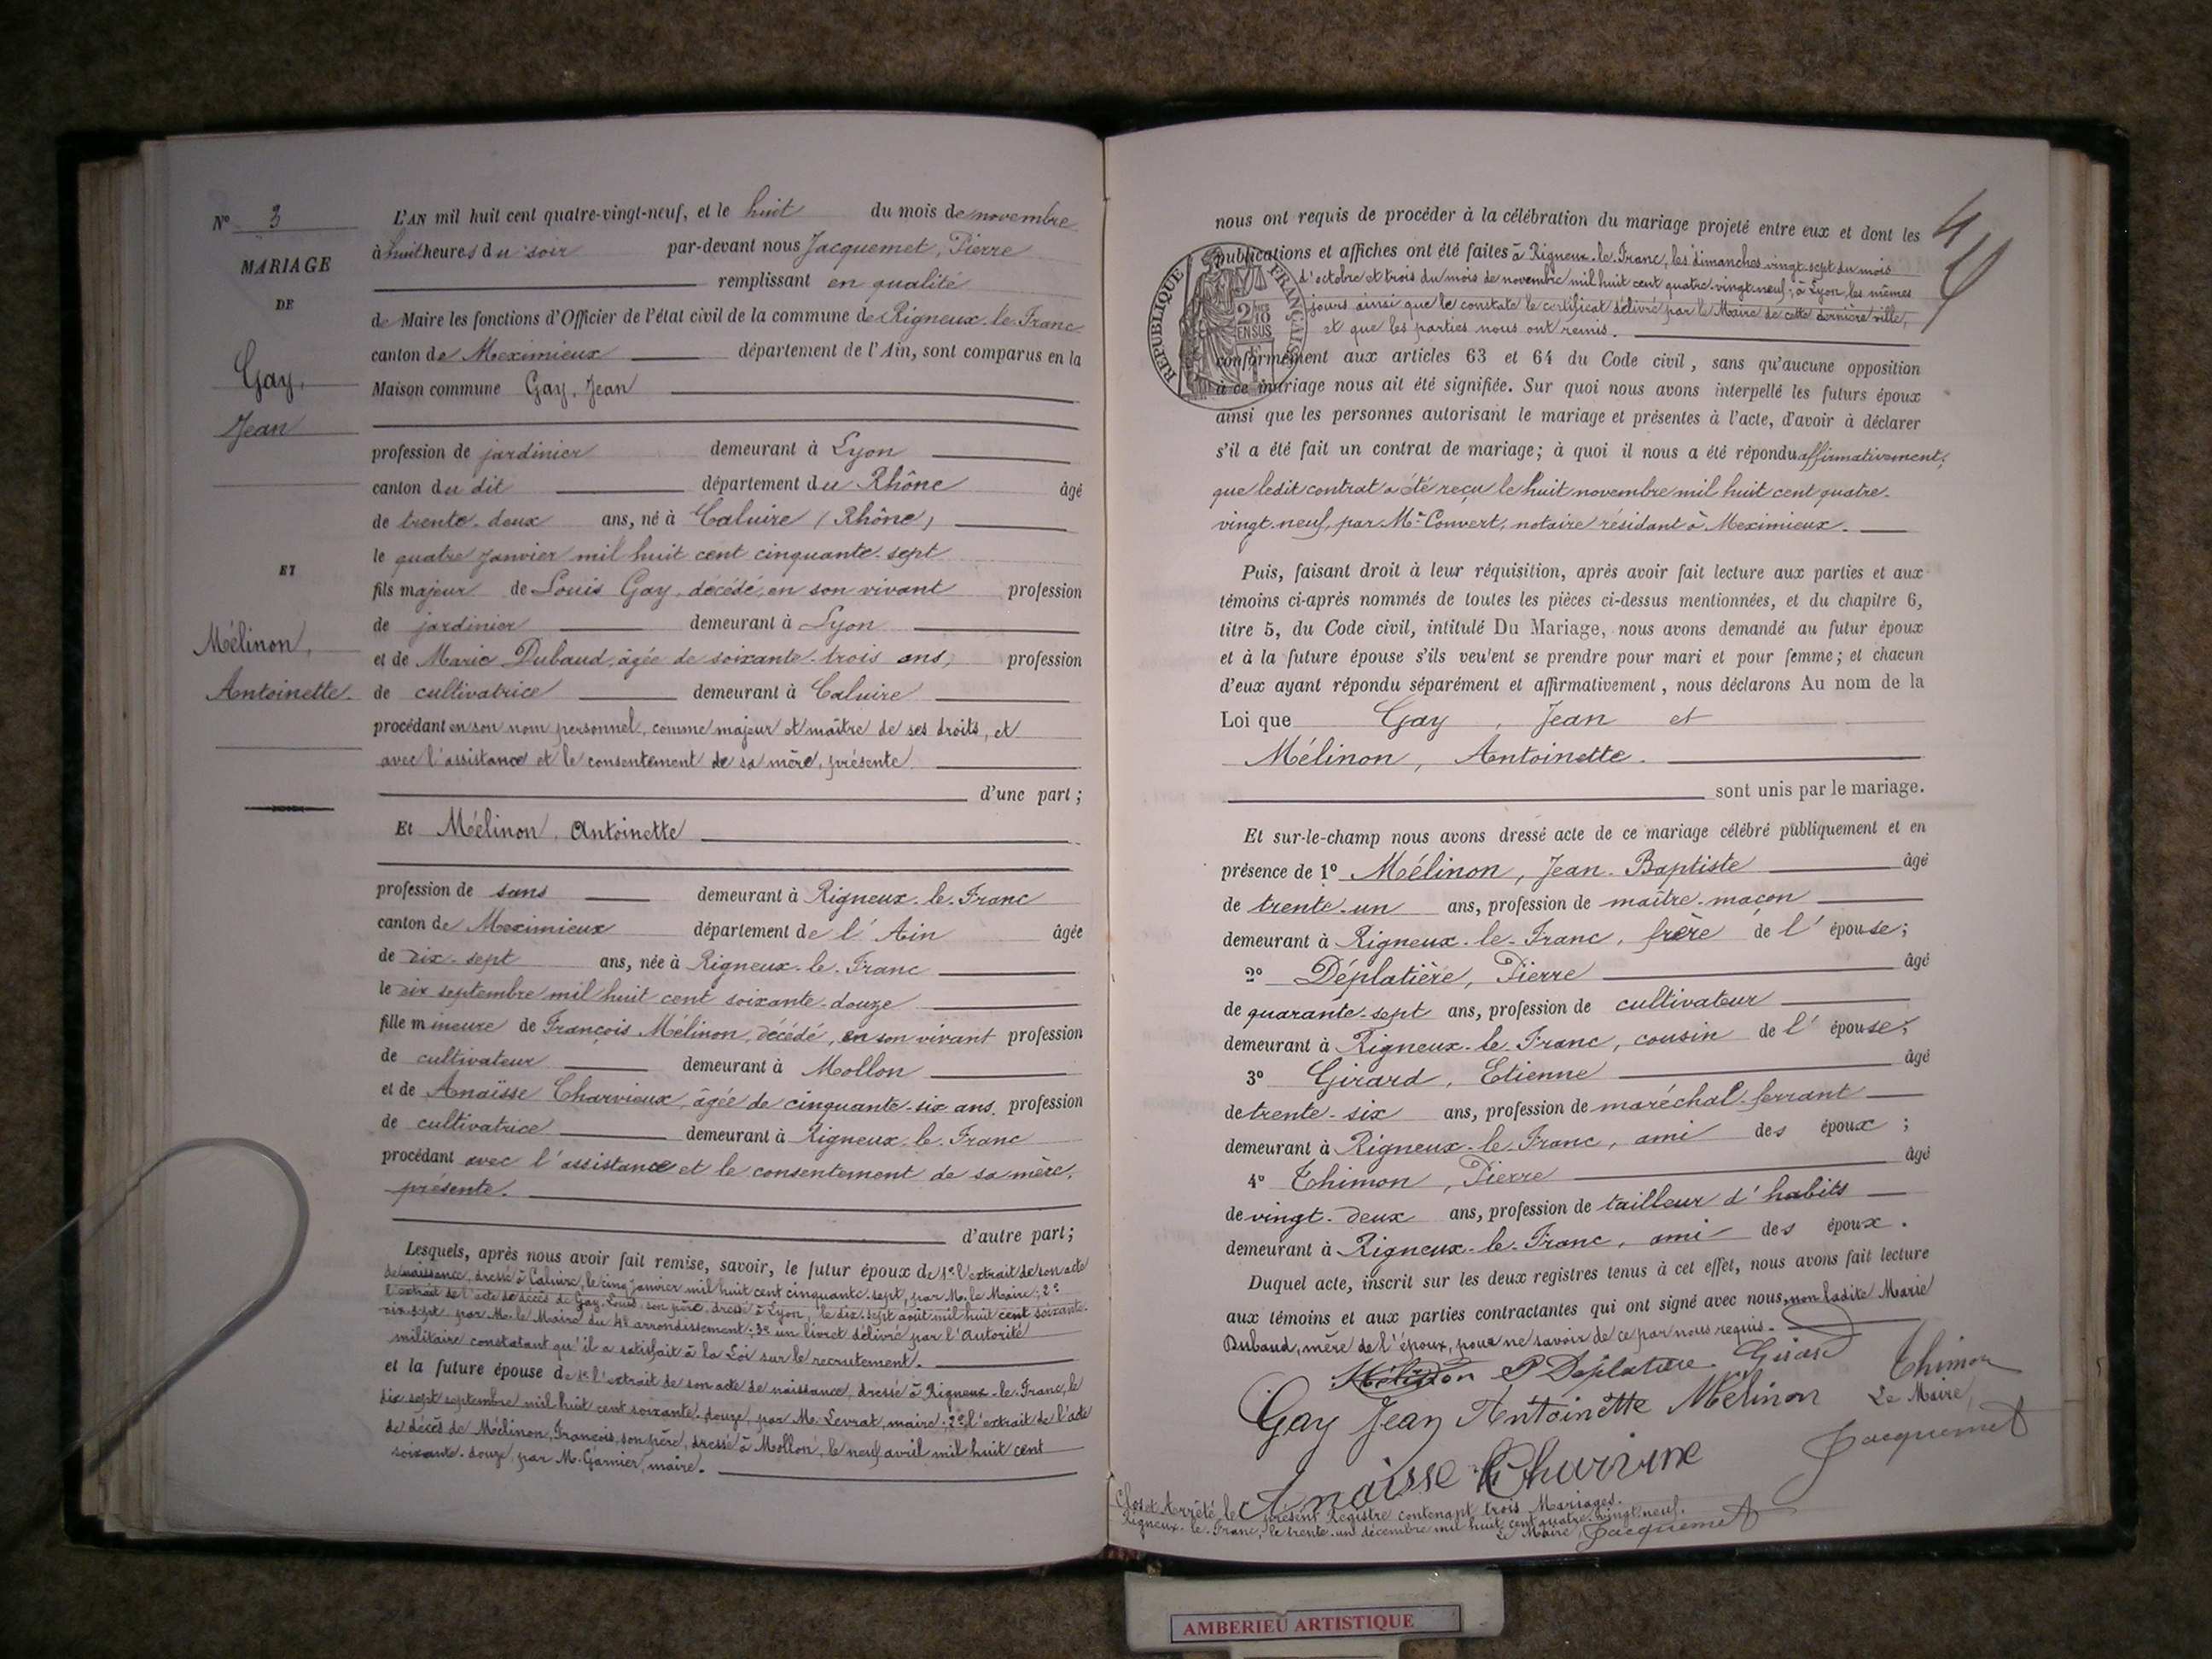 N° 3
MARIAGE
DE
Gay,
Jean
ET
Mélinon,
Antoinette.
L'AN mil huit cent quatre-vingt-neuf, et le huit du mois de novembre
à huit heures du soir par-devant nous Jacquemet, Pierre
remplissant en qualité
de Maire les fonctions d'Officier de l'état civil de la commune de Rigneux-le-Franc
canton de Meximieux département de l'Ain, sont comparus en la
Maison commune Gay, Jean
profession de jardinier demeurant à Lyon
canton du dit département du Rhône âgé
de trente-deux ans, né à Caluire (Rhône)
le quatre janvier mil huit cent cinquante-sept
fils majeur de Louis Gay, décédé, en son vivant profession
de jardinier demeurant à Lyon
et de Marie Dubaud, âgée de soixante-trois ans, profession
de cultivatrice demeurant à Caluire
procédant en son nom personnel, comme majeur et maître de ses droits, et
avec l'assistance et le consentement de sa mère, présente
d'une part;
Et Mélinon, Antoinette
profession de sans demeurant à Rigneux-le-Franc
canton de Meximieux département de l'Ain âgée
de dix-sept ans, née à Rigneux-le-Franc
le dix septembre mil huit cent soixante-douze
fille mineure de François Mélinon, décédé, en son vivant profession
de cultivateur demeurant à Mollon
et de Anaïsse Charvieux, âgée de cinquante-six ans, profession
de cultivatrice demeurant à Rigneux-le-Franc
procédant avec l'assistance et le consentement de sa mère,
présente.
d'autre part;
Lesquels, après nous avoir fait remise, savoir, le futur époux de 1° l'extrait de son acte
de naissance, dressé à Caluire, le cinq janvier mil huit cent cinquante-sept, par M. le Maire; 2°
l'extrait de l'acte de décès de Gay, Louis, son père, dressé à Lyon, le dix-sept août mil huit cent soixante-
dix-sept par M. le Maire du 4e arrondissement; 3° un livret délivré par l'Autorité
militaire constatant qu'il a satisfait à la Loi sur le recrutement.
et la future épouse de 1° l'extrait de son acte de naissance, dressé à Rigneux-le-Franc, le
dix sept septembre mil huit cent soixante-douze, par M. Levrat, maire; 2° l'extrait de l'acte
de décès de Mélinon, François, son père, dressé à Mollon, le neuf avril mil huit cent
soixante-douze, par M. Garnier, maire.
4
nous ont requis de procéder à la célébration du mariage projeté entre eux et dont les
publications et affiches ont été faites à Rigneux-le-Franc, les dimanches vingt-sept du mois
d'octobre et trois du mois de novembre mil huit cent quatre-vingt-neuf; à Lyon, les mêmes
jours ainsi que le constate le certificat délivré par le Maire de cette dernière ville,
et que les parties nous ont remis.
RÉPUBLIQUE FRANÇAISE
2/10 EN SUS
conformément aux articles 63 et 64 du Code civil, sans qu'aucune opposition
à ce mariage nous ait été signifiée. Sur quoi nous avons interpellé les futurs époux
ainsi que les personnes autorisant le mariage et présentes à l'acte, d'avoir à déclarer
s'il a été fait un contrat de mariage; à quoi il nous a été répondu affirmativement;
que ledit contrat a été reçu le huit novembre mil huit cent quatre-
vingt-neuf, par Me Convert, notaire résidant à Meximieux.
Puis, faisant droit à leur réquisition, après avoir fait lecture aux parties et aux
témoins ci-après nommés de toutes les pièces ci-dessus mentionnées, et du chapitre 6,
titre 5, du Code civil, intitulé Du Mariage, nous avons demandé au futur époux
et à la future épouse s'ils veulent se prendre pour mari et pour femme; et chacun
d'eux ayant répondu séparément et affirmativement, nous déclarons Au nom de la
Loi que Gay, Jean et
Mélinon, Antoinette.
sont unis par le mariage.
Et sur-le-champ nous avons dressé acte de ce mariage célébré publiquement et en
présence de 1° Mélinon, Jean-Baptiste âgé
de trente-un ans, profession de maître-maçon
demeurant à Rigneux-le-Franc, frère de l'épouse;
2° Déplatière, Pierre âgé
de quarante-sept ans, profession de cultivateur
demeurant à Rigneux-le-Franc, cousin de l'épouse;
3° Girard, Etienne âgé
de trente-six ans, profession de maréchal-ferrant
demeurant à Rigneux-le-Franc, ami des époux;
4° Thimon, Pierre âgé
de vingt-deux ans, profession de tailleur d'habits
demeurant à Rigneux-le-Franc, ami des époux.
Duquel acte, inscrit sur les deux registres tenus à cet effet, nous avons fait lecture
aux témoins et aux parties contractantes qui ont signé avec nous, non ladite Marie
Dubaud, mère de l'époux, pour ne savoir de ce par nous requis.
Mélinon P Déplatière Girard Thimon
Gay Jean Antoinette Mélinon Le Maire,
Jacquemet
Anaisse Charvine
Clos et Arrêté le présent Registre contenant trois Mariages.
Rigneux-le-Franc, le trente-un décembre mil huit cent quatre-vingt-neuf.
Le Maire, Jacquemet
AMBERIEU ARTISTIQUE